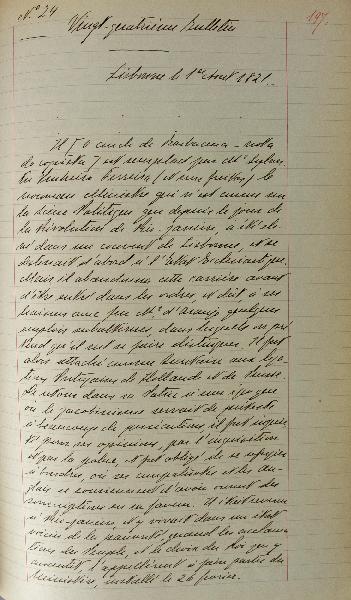 Nº 24
197.
Vingt-quatrième Bulletin
Lisbonne le 1er Août 1821.
Il [o conde de Barbacena - nota
do copista] est remplacé par Mr. Sylves-
tre Pinheiro Ferreira, le
nouveau Ministre qui n'est connu sur
la scène Politique que depuis le jour de
la Révolution de Rio-Janeiro, a été éle-
vé dans un couvent de Lisbonne, et se
destinait d'abord à l'état Ecclésiastique.
Mais il abandonna cette carrière avant
d'être entré dans les ordres, et dût à ses
liaisons avec feu Mr. d'Araujo quelques
emplois subalternes, dans lesquels on pré-
tend qu'il eut se faire distinguer. Il fut
alors attaché comme Secrétaire aux léga-
tions Portugaises de Hollande et de Prusse.
De retour dans sa Patrie à une époque
où le jacobinisme servait de prétexte
à beaucoup de persécutions, il fut inquié-
té pour ses opinions, par l'inquisition
et par la police, et fut obligé de se réfugier
à Londres, où ses compatriotes et les An-
glais se souviennent d'avoir ouvert des
souscriptions en sa faveur. Il était revenu
à Rio-Janeiro, et y vivait dans un état
voisin de la pauvreté, quand les acclama-
tions du Peuple, et le choix du Roi qui y
, l'appellèrent à faire partie du
Ministère, installé le 26 février.